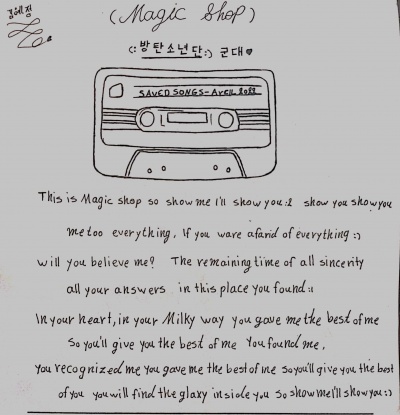 김혜정
(Magic Shop)
(: 방탄소년단 :) 군대♥
SAVED SONGS-AVRIL 2022
This is Magic shop so show me I'll show you :) show you show you
me too everything, If you ware afarid of everything :)
will you believe me? The remaining time of all sincerity
all your answers in this place you found ::
In your heart, in your Milky way you gave me the best of me
So you'll give you the best of me You found me,
you recognized me you gave me the best of me So you'll give you the best
of you you will find the glaxy inside you so show me I'll show you :)